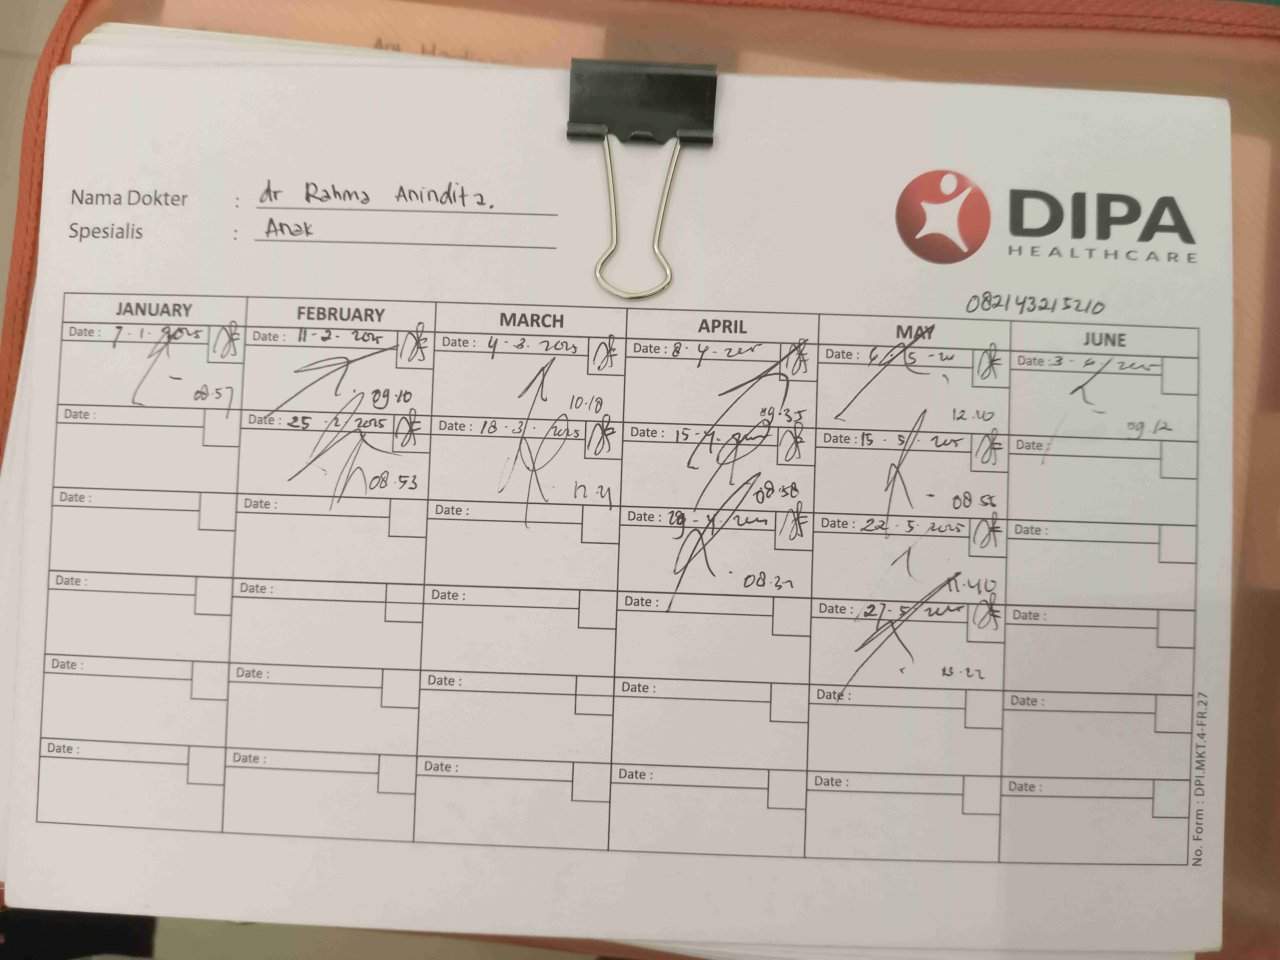 Nama Dokter : dr Rahma Anindita.
Spesialis : Anak
DIPA
HEALTHCARE
082143215210
JANUARY FEBRUARY MARCH APRIL MAY JUNE
Date : 7-1-2025 Date : 11-2-2025 Date : 4-3-2025 Date : 8-4-2025 Date : Date : 3-
08.57 09.10 10.18 09.35 12.40 09.12
Date : Date : 25 2 2025 Date : 18-3-2025 Date : 15-4- Date : 15-5-2025 Date :
08.53 08.58 08.55
Date : Date : Date : Date : Date : 22-5-2025 Date :
11.40
Date : Date : Date : Date : Date : 27-5-2025 Date :
Date : Date : Date : Date : Date : Date :
Date : Date : Date : Date : Date : Date :
No. Form : DPI.MKT.4-FR.27